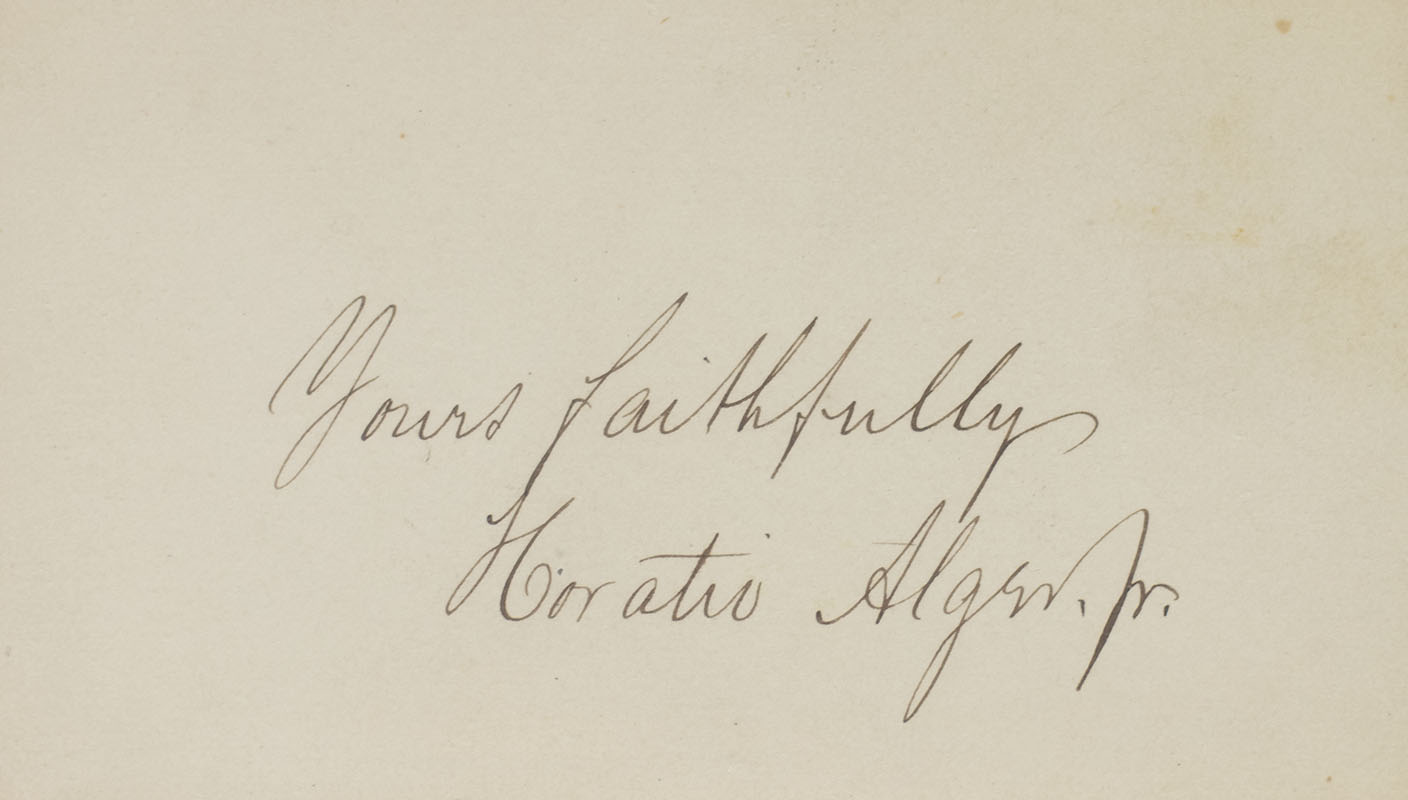 Yours faithfully
Horatio Alger. Jr.